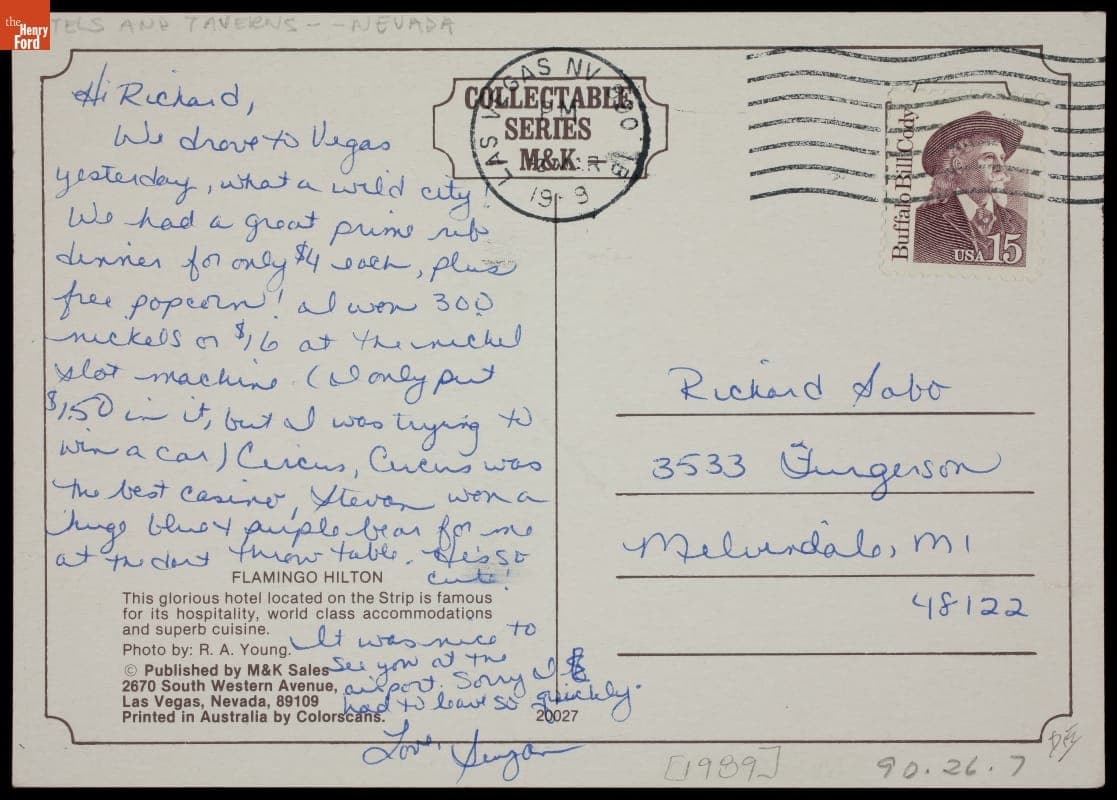 the Henry Ford
TELS AND TAVERNS - - NEVADA
Hi Richard,
We drove to Vegas
yesterday, what a wild city!
We had a great prime rib
dinner for only $4 each, plus
free popcorn! I won 300
nickels or $16 at the nickel
slot machine. (I only put
$1.50 in it, but I was trying to
win a car) Circus, Circus was
the best casino, Stevan won a
huge blue & purple bear for me
at the dart throw table. He's so
cute!
FLAMINGO HILTON
This glorious hotel located on the Strip is famous
for its hospitality, world class accommodations
and superb cuisine.
Photo by: R. A. Young.
It was nice to
see you at the
airport. Sorry I
had to leave so quickly.
Love, Susan
© Published by M&K Sales
2670 South Western Avenue,
Las Vegas, Nevada, 89109
Printed in Australia by Colorscans.
20027
COLLECTABLE
SERIES
M&K
LAS VEGAS NV
PM
Buffalo Bill Cody
USA 15
Richard Sabo
3533 Furgerson
Melvindale, MI
48122
[1989]
90.26.7